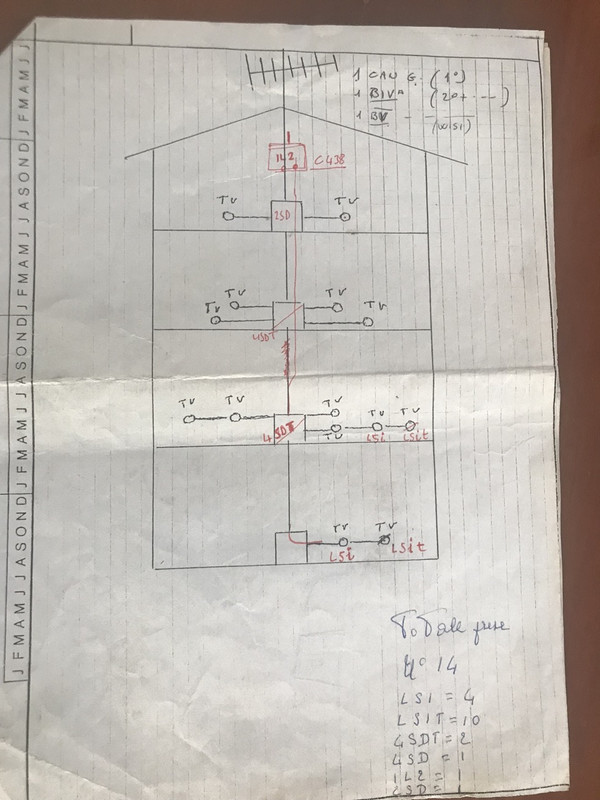 1 CAN 6. (1°)
1 BIVA (20+ ---)
1 BV -
(WISI)
1L2 C438
TV TV
2SD
TV TV TV TV
4SDT
TV TV TV TV TV
4SDT TV LSi LSit
TV TV
LSi LSit
ToTale prese
N° 14
LSI = 4
LSIT = 10
4SDT = 2
4SD = 1
1L2 = 1
LSD = 1
J F M A M J J A S O N D J F M A M J J A S O N D J F M A M J J A S O N D J F M A M J J